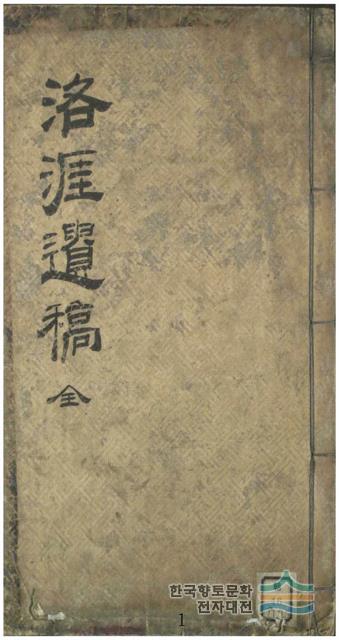 洛涯遺稿 全
한국향토문화
전자대전
1